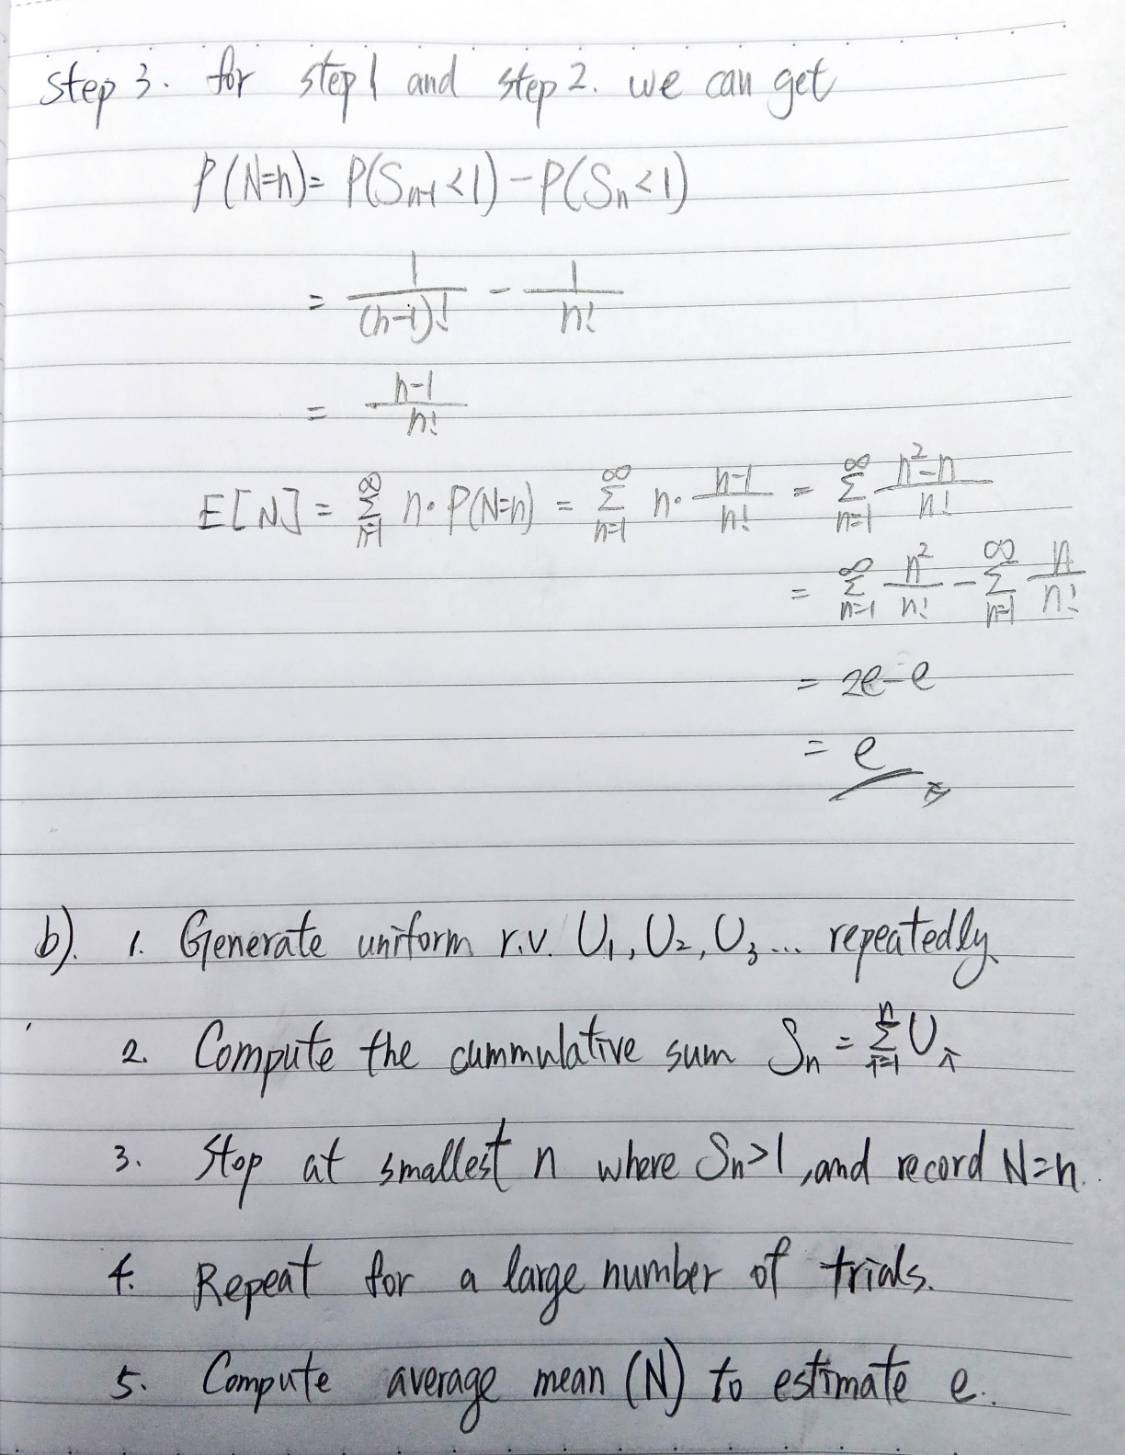 step 3. for step 1 and step 2. we can get
P(N=n) = P(Sn-1<1) - P(Sn<1)
= 1/(n-1)! - 1/n!
= n-1/n!
E[N] = ∞Σn=1 n·P(N=n) = ∞Σn=1 n· n-1/n! = ∞Σn=1 n²-n/n!
= ∞Σn=1 n²/n! - ∞Σn=1 n/n!
= 2e-e
= e
b). 1. Generate uniform r.v. U1, U2, U3... repeatedly.
2. Compute the cummulative sum Sn = nΣi=1 Ui
3. Stop at smallest n where Sn>1, and record N=n.
4. Repeat for a large number of trials.
5. Compute average mean (N) to estimate e.